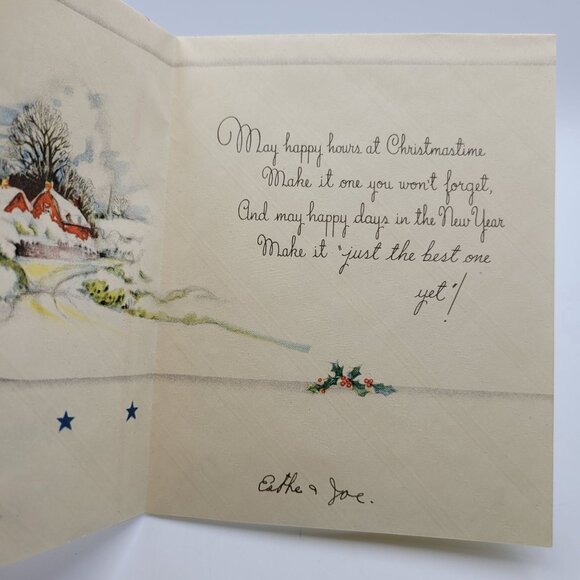 May happy hours at Christmastime
Make it one you won't forget,
And may happy days in the New Year
Make it "just the best one
yet"!
Esthe & Joe.